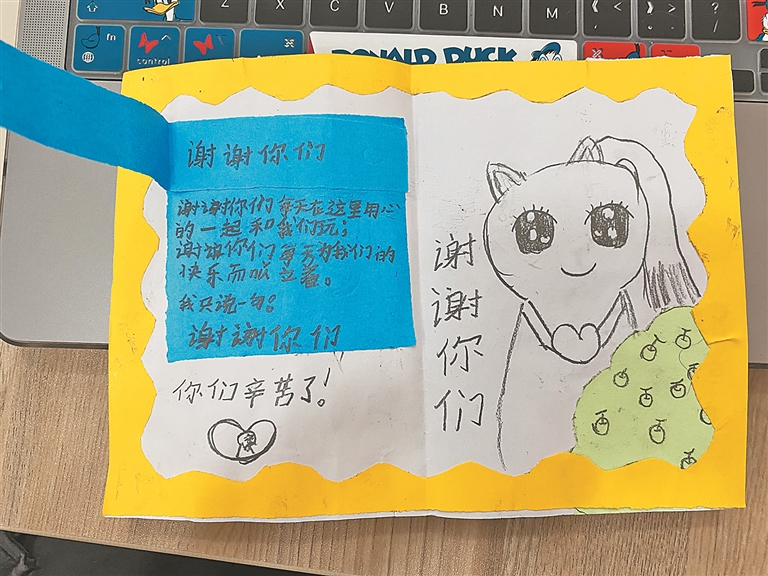 Z X C V B N M
fn
control
DONALD DUCK
谢谢你们
谢谢你们每天在这里用心
的一起和我们玩；
谢谢你们每天为我们的
快乐而
着。
我只说一句。
谢谢你们
你们辛苦了！
谢谢你们